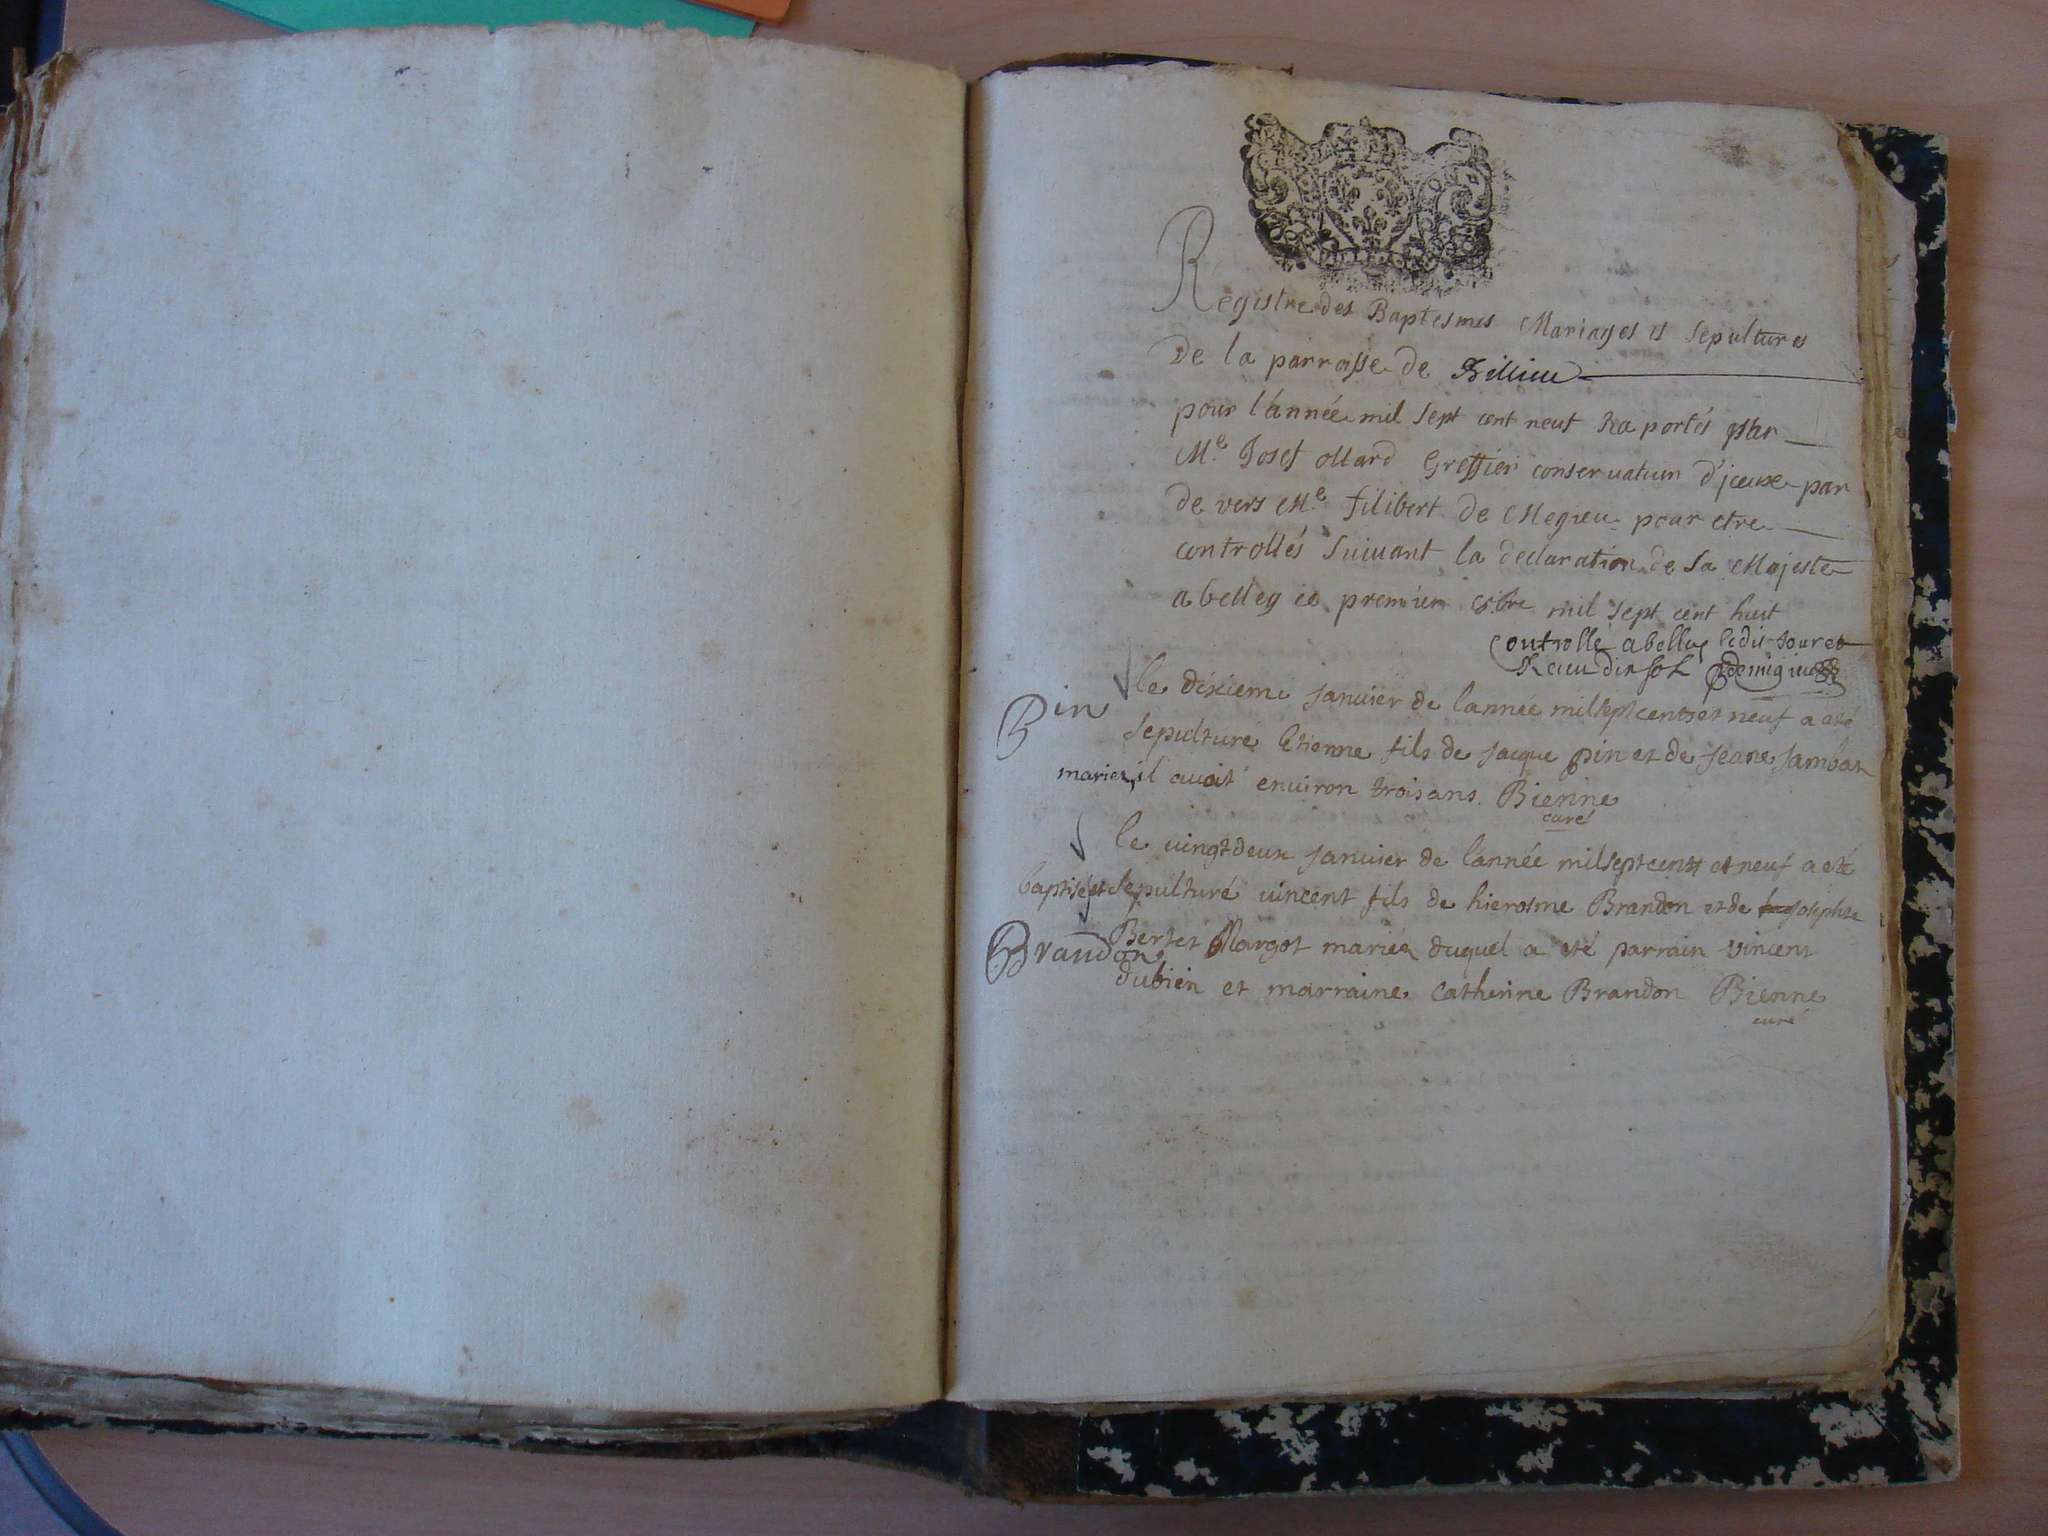 Registre des Baptesmes Mariages et Sepultures
De la parroisse de Billieu
pour l'année mil sept cent neuf Raportés par
Me Josef ollard Greffier conservateur d'iceux par
de vers Me filibert de Megieu pour etre
controllés suivant la declaration de Sa Majesté
a belley ce premier mil sept cent huit
Controllé a belley ledit Jour et
Receu dix sol Demigieu
le dixieme janvier de lannée milseptcents et neuf a eté
Pin
sepulturé Etienne fils de jacque pin et de jeane jambat
mariez, il avoit environ trois ans. Bienne
curé
le vingtdeux janvier de lannée milseptcents et neuf a eté
baptisé et sepulturé vincent fils de hierosme Brandon et de josephte
Brandon
Bertet Margot mariez duquel a eté parrain vincent
dubien et marraine Catherine Brandon Bienne
curé